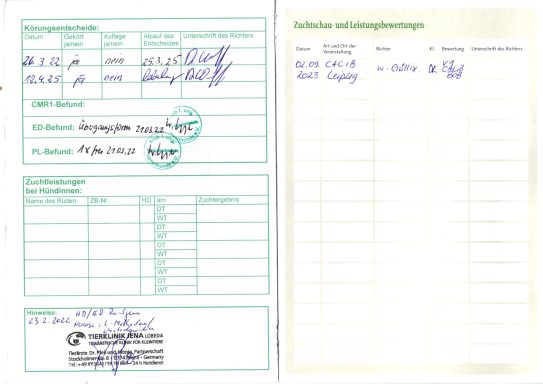 Körungsentscheide:
Datum Gekört ja/nein Auflage ja/nein Ablauf des Entscheides Unterschrift des Richters
26.3.22 ja nein 25.3.25
12.4.25 ja nein
CMR1-Befund:
ED-Befund: Übergangsform 21.03.22
PL-Befund: 1x frei 21.03.22
Zuchtleistungen
bei Hündinnen:
Name des Rüden ZB-Nr. HD am Zuchtergebnis
DT
WT
DT
WT
DT
WT
DT
WT
DT
WT
Hinweise: HD/ED Röntgen
23.2.2022
TIERKLINIK JENA LOBEDA
TIERÄRZTLICHE KLINIK FÜR KLEINTIERE
Tierärzte Dr. Partnerschaft
Germany
24 h Notdienst
Zuchtschau- und Leistungsbewertungen
Datum Art und Ort der Veranstaltung Richter Kl. Bewertung Unterschrift des Richters
02.09. CACIB V1
2023 Leipzig CACIB
BOB